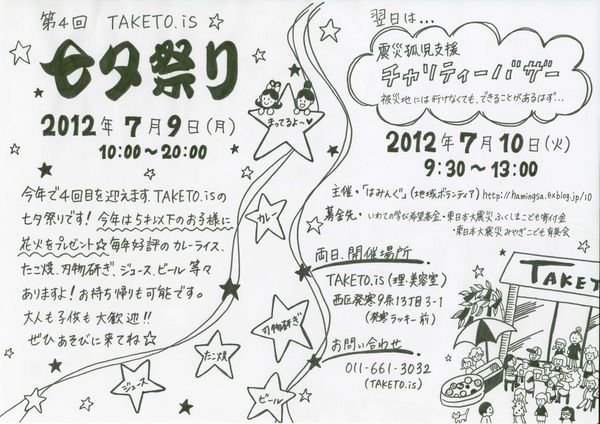 第4回 TAKETO.is
七夕祭り
2012年7月9日(月)
10:00〜20:00
今年で4回目を迎えます、TAKETO.isの
七夕祭りです!今年は5才以下のお子様に
花火をプレゼント☆毎年好評のカレーライス、
たこ焼、刃物研ぎ、ジュース、ビール 等々
ありますよ!お持ち帰りも可能です。
大人も子供も大歓迎!!
ぜひあそびに来てね☆
まってるよ〜♥
カレー
刃物研ぎ
たこ焼
ジュース
ビール
翌日は...
震災孤児支援
チャリティーバザー
被災地には行けなくても、できることがあるはず...
2012年7月10日(火)
9:30〜13:00
主催・「はみんぐ」(地域ボランティア)http://hamingsa.exblog.jp/i0
募金先・いわての学び希望基金・東日本大震災ふくしまこども寄付金
・東日本大震災みやぎこども育英会
両日、開催場所
TAKETO.is(理・美容室)
西区発寒9条13丁目3-1
(発寒ラッキー前)
お問い合わせ
011-661-3032
(TAKETO.is)
TAKET